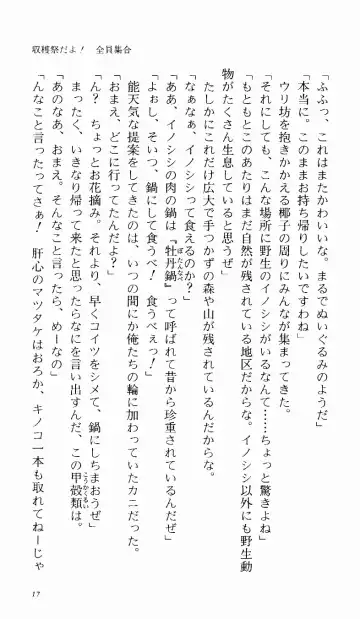 収穫祭だよ！　全員集合
「ふふっ、これはまたかわいいな。まるでぬいぐるみのようだ」
「本当に。このままお持ち帰りしたいですわね」
ウリ坊を抱きかかえる椰子の周りにみんなが集まってきた。
「それにしても、こんな場所に野生のイノシシがいるなんて……ちょっと驚きよね」
「もともとこのあたりはまだ自然が残されている地区だからな。イノシシ以外にも野生動
物がたくさん生息していると思うぜ」
たしかにこれだけ広大で手つかずの森や山が残されているんだからな。
「なぁなぁ、イノシシって食えるのか？」
「ああ、イノシシの肉の鍋は『牡丹鍋』って呼ばれて昔から珍重されているんだぜ」
「よぉし、そいつ、鍋にして食うべ！　食うべぇっ！」
能天気な提案をしてきたのは、いつの間にか俺たちの輪に加わっていたカニだった。
「おまえ、どこに行ってたんだよ？」
「ん？　ちょっとお花摘み。それより、早くコイツをシメて、鍋にしちまおうぜ」
まったく、いきなり帰って来たと思ったらなにを言い出すんだ、この甲殻類は。
「あのなあ、おまえ。そんなこと言ったら、めーなの」
「んなこと言ったってさぁ！　肝心のマツタケはおろか、キノコ一本も取れてねーじゃ
17